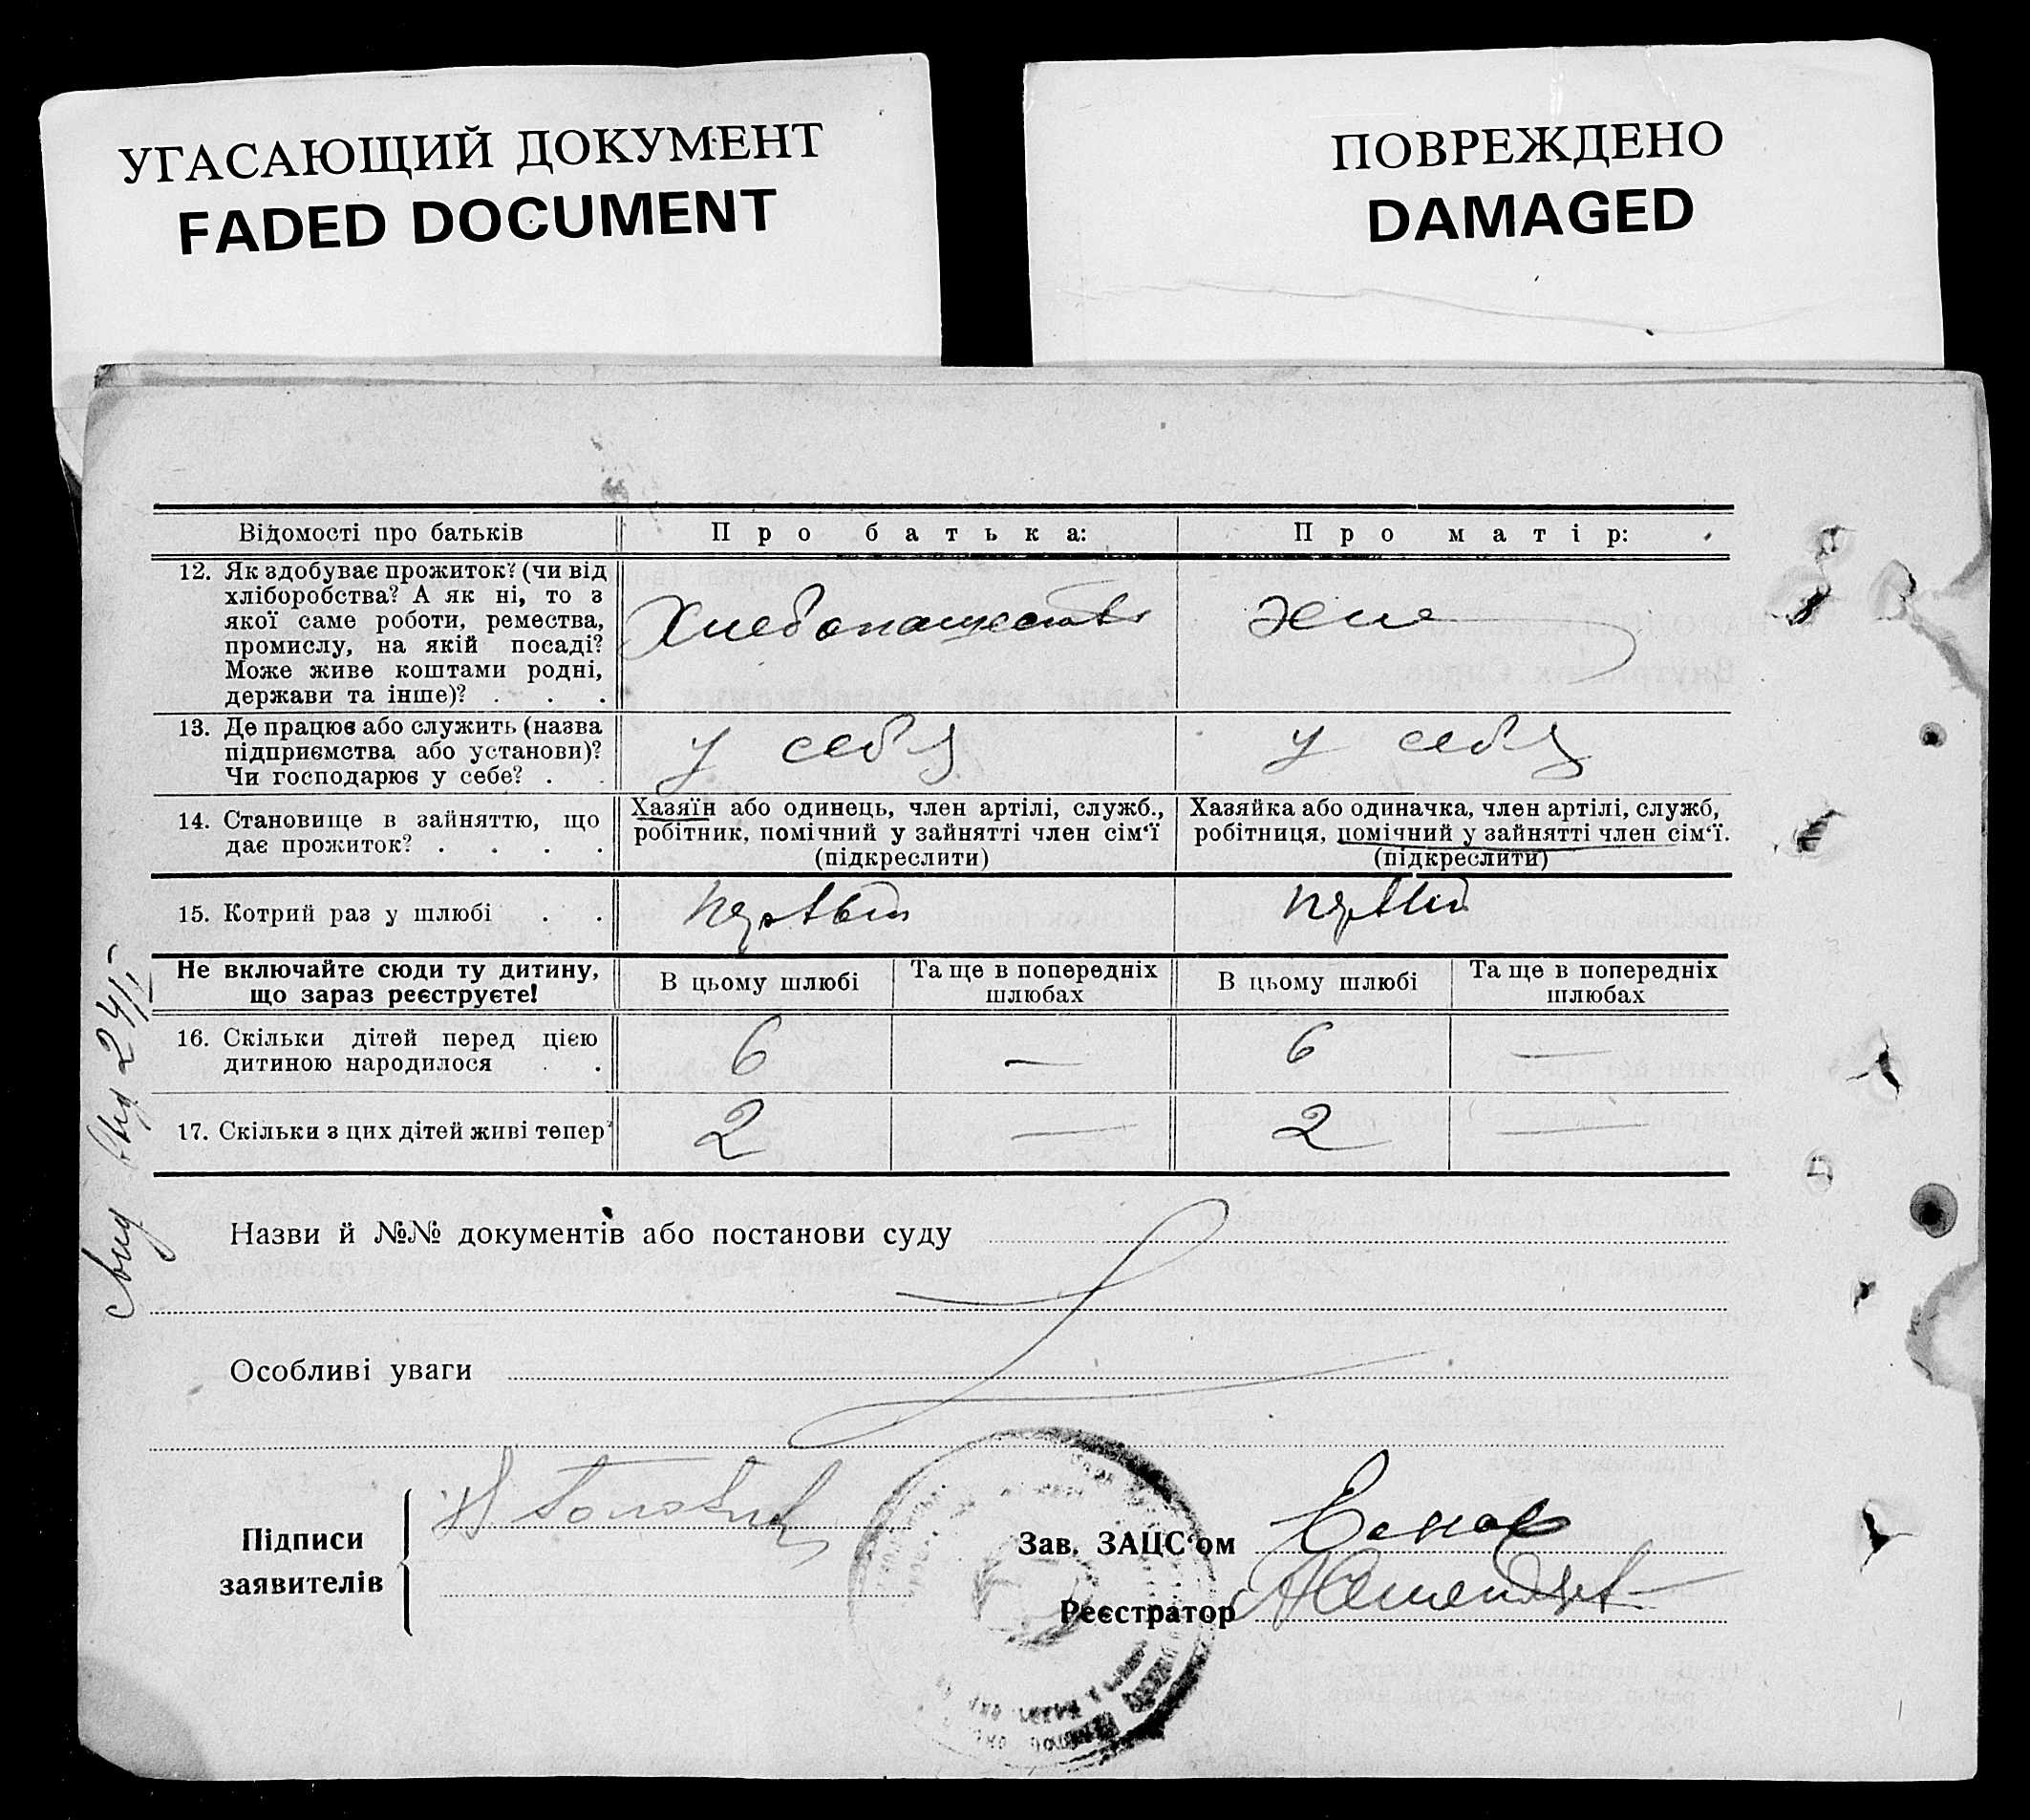 УГАСАЮЩИЙ ДОКУМЕНТ
FADED DOCUMENT
ПОВРЕЖДЕНО
DAMAGED
Відомості про батьків
Про батька:
Про матір:
12. Як здобуває прожиток? (чи від
хліборобства? А як ні, то з
якої саме роботи, ремества,
промислу, на якій посаді?
Може живе коштами родні,
держави та інше)? . . .
Хлебопашество
13. Де працює або служить (назва
підприємства або установи)?
Чи господарює у себе? . .
у себя
у себя
14. Становище в зайняттю, що
дає прожиток? . . . .
Хазяїн або одинець, член артілі, служб.,
робітник, помічний у зайнятті член сім‘ї
(підкреслити)
Хазяйка або одиначка, член артілі, служб,
робітниця, помічний у зайнятті член сім‘ї.
(підкреслити)
15. Котрий раз у шлюбі . .
первый
первый
Не включайте сюди ту дитину,
що зараз реєструєте!
В цьому шлюбі
Та ще в попередніх
шлюбах
В цьому шлюбі
Та ще в попередніх
шлюбах
16. Скільки дітей перед цією
дитиною народилося . .
6
—
6
—
17. Скільки з цих дітей живі тепер
2
—
2
—
Назви й №№ документів або постанови суду
Особливі уваги
Підписи
заявителів
Зав. ЗАЦС‘ом
Реєстратор